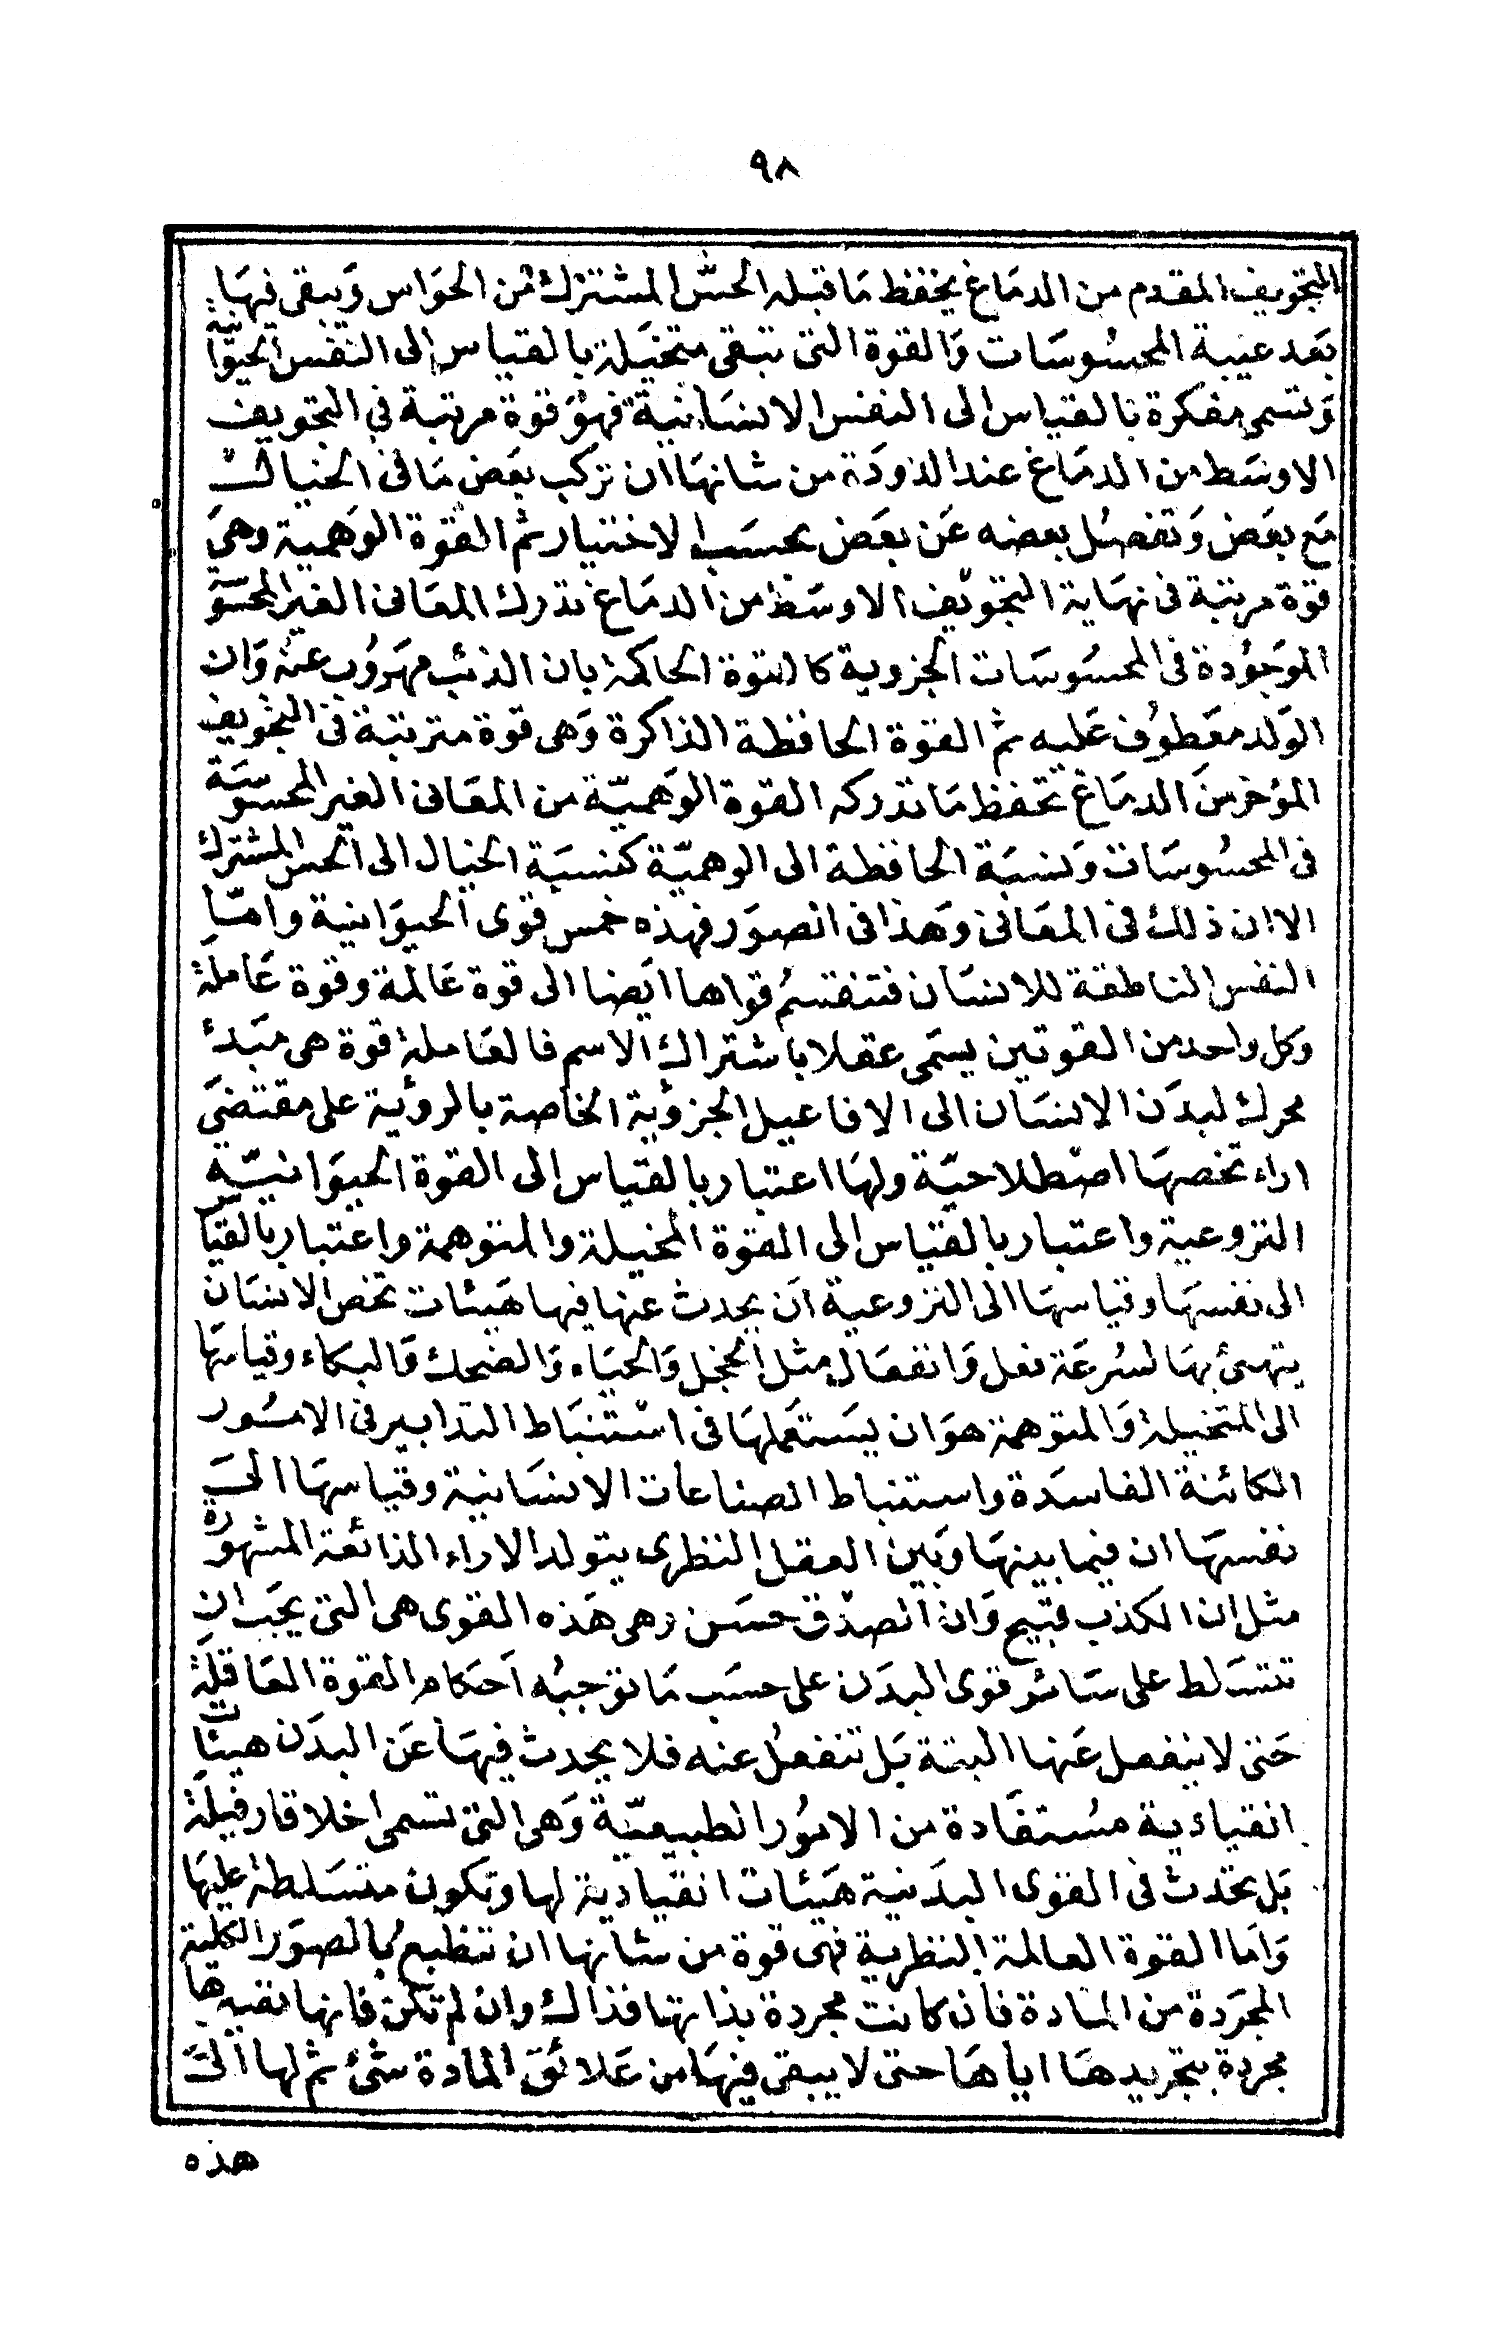 ٩٨
التجويف المقدم من الدماغ يحفظ ما قبله الحس المشترك من الحواس ويبقى فيها
بعد غيبة المحسوسات والقوة التى تبقى متخيلة بالقياس الى النفس الحيوانية
وتسمى مفكرة بالقياس الى النفس الانسانية فهو قوة مرتبة في التجويف
الاوسط من الدماغ عند الذودة من شانها ان تركب بعض ما فى الخيال
مع بعض وتفصل بعضه عن بعض بحسب الاختيار ثم القوة الوهمية وهي
قوة مرتبة فى نهاية التجويف الاوسط من الدماغ تدرك المعانى الغير المحسوسة
الموجودة فى المحسوسات الجزوية كالقوة الحاكمة بان الذئب مهروب عنه وان
الولد معطوف عليه ثم القوة الحافظة الذاكرة وهى قوة مترتبة فى التجويف
المؤخر من الدماغ تحفظ ما تدركه القوة الوهميّة من المعانى الغير المحسوسة
فى المحسوسات ونسبة الحافظة الى الوهميّة كنسبة الخيال الى الحس المشترك
الا ان ذلك فى المعانى وهذا فى الصور فهذه خمس قوى الحيوانية وامّا
النفس الناطقة للانسان فتنقسم قواها ايضا الى قوة عالمة وقوة عاملة
وكل واحد من القوتين يسمى عقلا باشتراك الاسم فالعاملة قوة هى مبدئ
محرك لبدن الانسان الى الافاعيل الجزؤية الخاصة بالروئية على مقتضى
اراء تخصها اصطلاحيّة ولها اعتبار بالقياس الى القوة الحيوانيّة
النزوعية واعتبار بالقياس الى القوة المخيلة والمتوهمة واعتبار بالقياس
الى نفسها وقياسها الى النزوعية ان يحدث عنها فيها هيئات تخص الانسان
يتهئ بها لسرعة فعل وانفعال مثل الخجل والحياء والضحك والبكاء وقياسها
الى المتخيلة والمتوهمة هو ان يستعملها فى استنباط التدابير فى الامور
الكائنة الفاسدة واستنباط الصناعات الانسانية وقياسها الى
نفسها ان فيما بينها وبين العقل النظرى يتولد الاراء الذائعة المشهورة
مثل ان الكذب قبيح وان الصدق حسن وهى هذه القوى هى التى يجب ان
تتسلط على سائر قوى البدن على حسب ما توجبه احكام القوة العاقلة
حتى لا ينفعل عنها البتة بل تنفعل عنه فلا يحدث فيها عن البدن هيئات
انقيادية مستفادة من الامور الطبيعيّة وهى التى تسمى اخلاقا رذيلة
بل تحدث فى القوى البدنية هيئات انقيادية لها وتكون متسلطة عليها
واما القوة العالمة النظرية فهى قوة من شانها ان تنطبع بالصور الكلية
المجردة من المادة فان كانت مجردة بذاتها فذاك وان لم تكن فانها تصيرها
مجردة بتجريدها اياها حتى لا يبقى فيها من علائق المادة شئ ثم لها الى
هذه